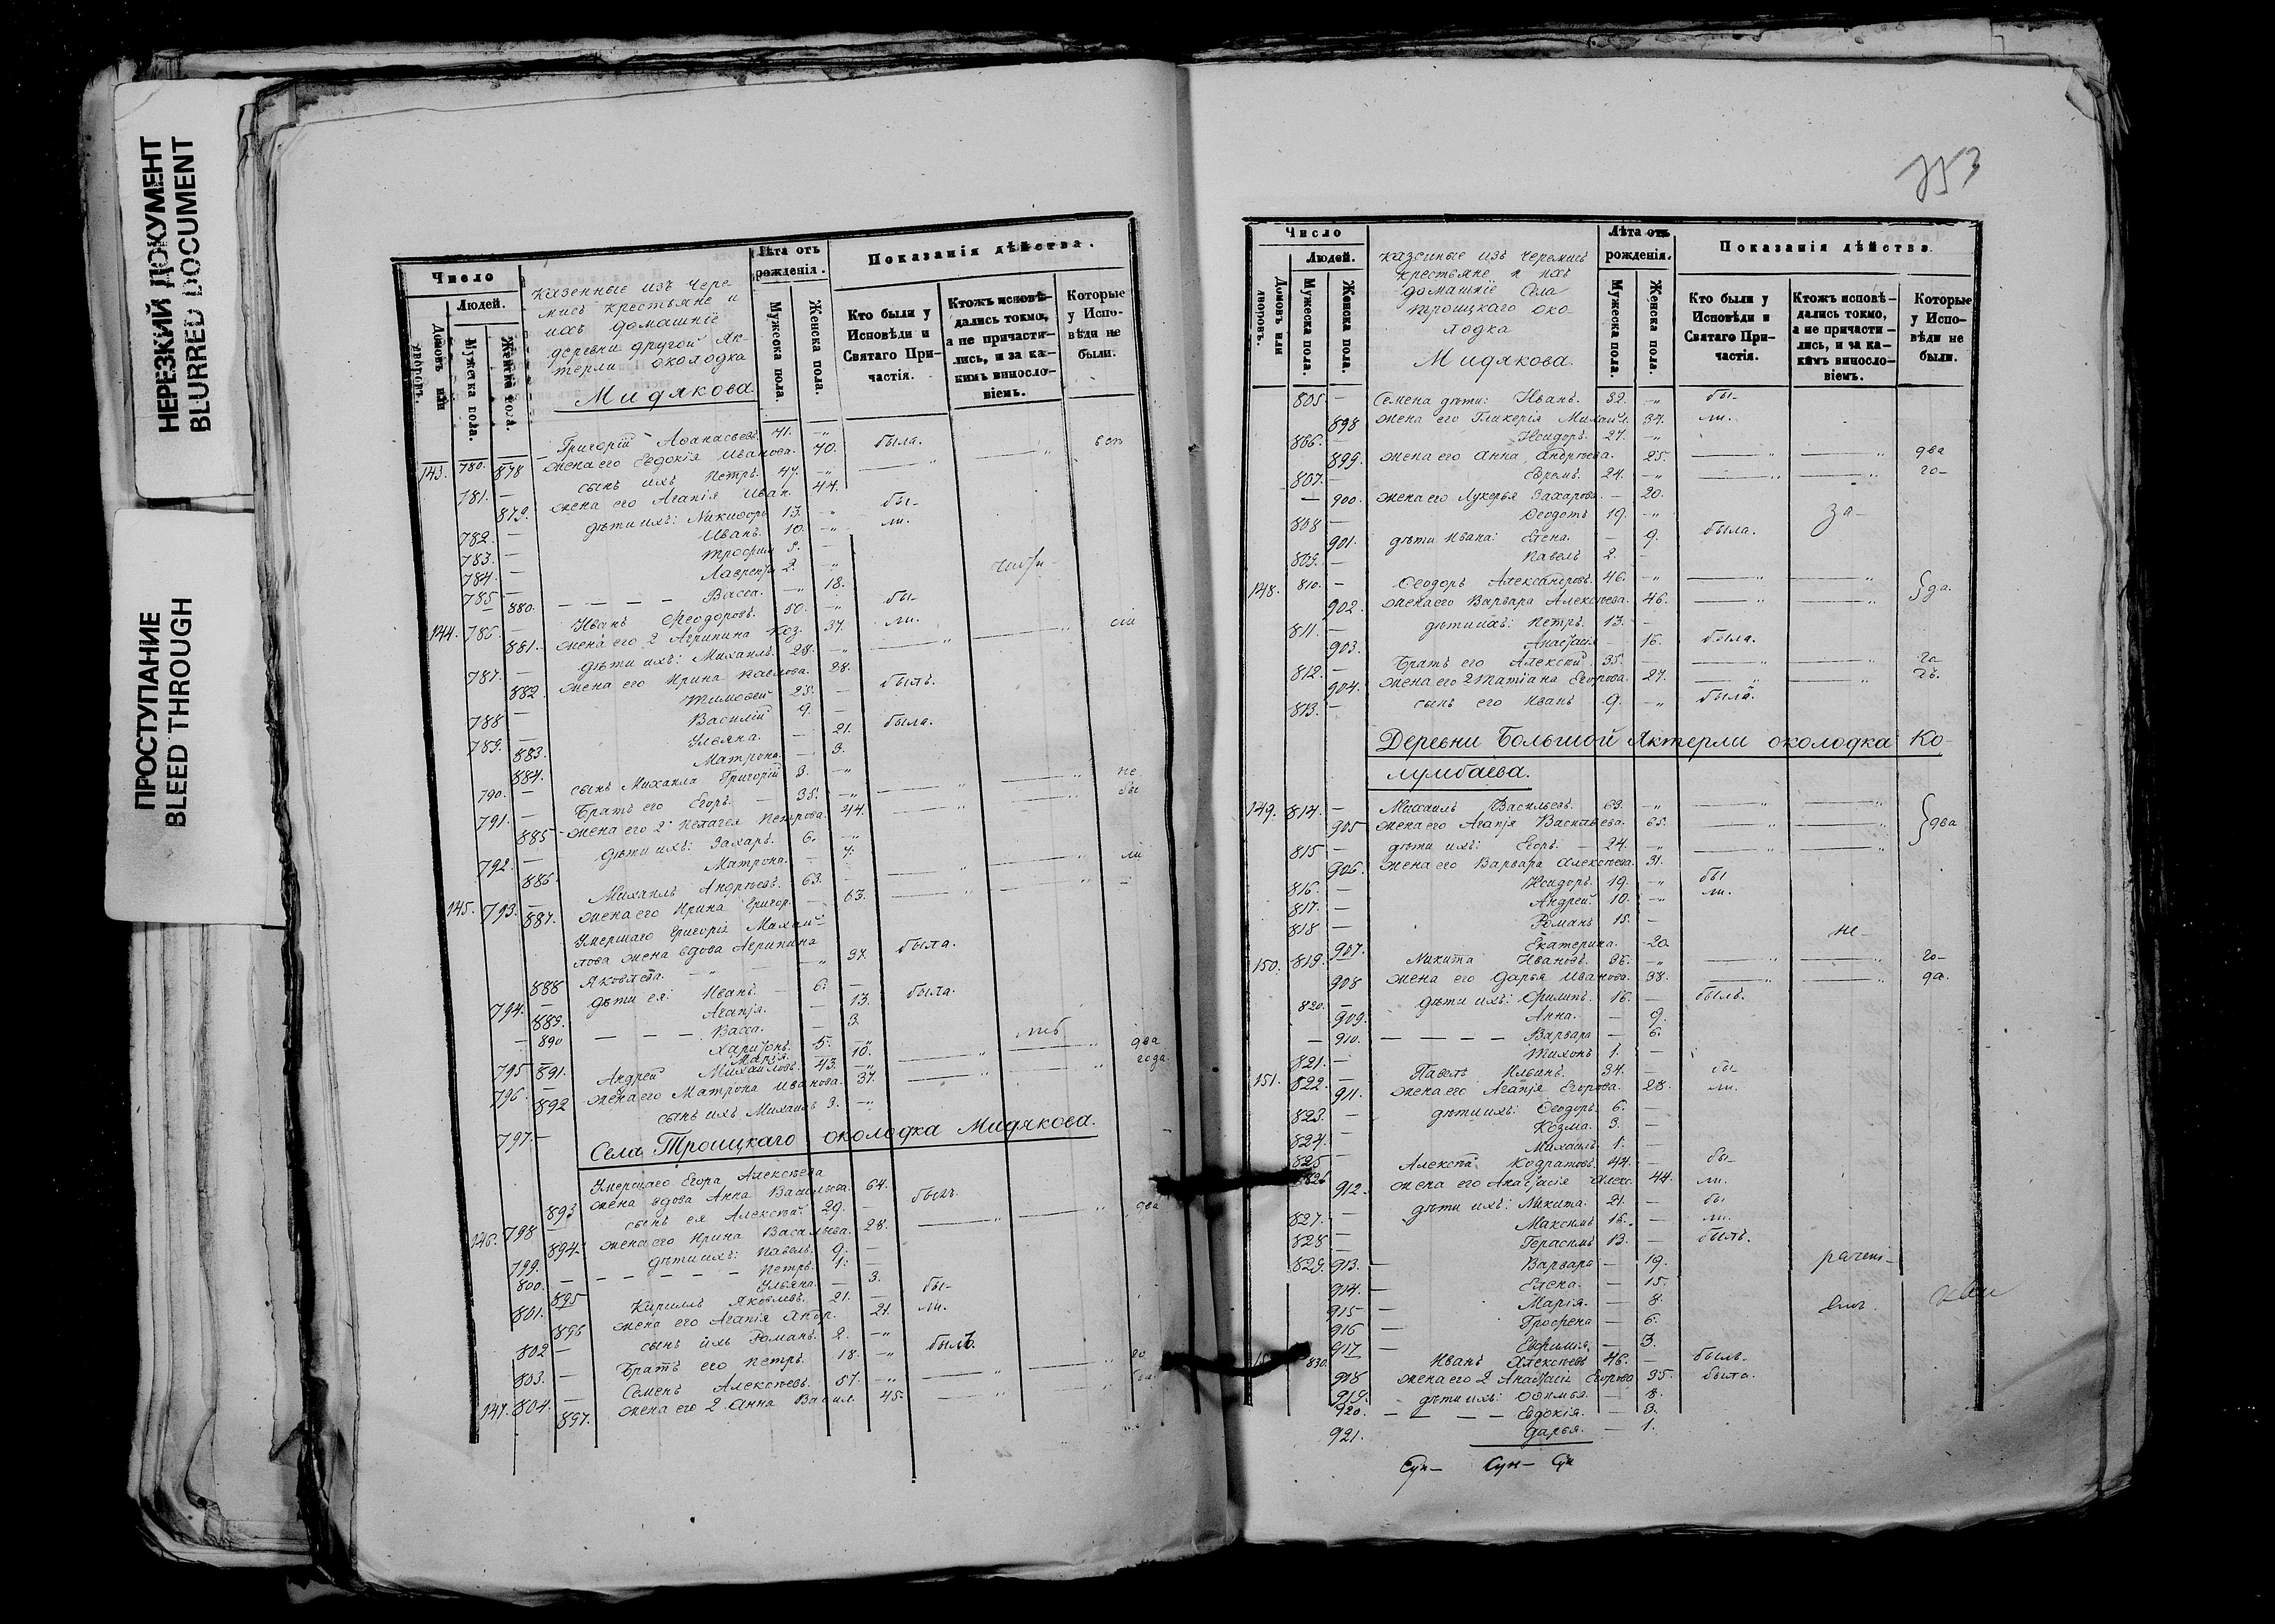 НЕРЕЗКИЙ ДОКУМЕНТ
BLURRED DOCUMENT
ПРОСТУПАНИЕ
BLEED THROUGH
Число
Людей.
Домовъ или дворовъ.
Мужеска пола.
Женска пола.
казенные изъ чере
мисъ крестьяне и
ихъ домашніе
деревни другой Як-
терли околодка
Мидякова.
Лѣта отъ рожденія.
Мужеска пола.
Женска пола.
Показанія дѣйства.
Кто были у Исповѣди и Святаго При-частія.
Ктожъ исповѣ-дались токмо, а не причасти-лись, и за ка-кимъ винословіемъ.
Которые у Испо-вѣди не были.
143. 780. 878 Григорій Аѳанасьевъ. 71. -"
жена его Евдокія Иванова. 70. была.
781. — сынъ ихъ Петръ. 47. -"
879. жена его Агапія Иван. 44.
782. — дѣти ихъ: Никифоръ 13. -" бы-
783. — Иванъ. 10. -" ли.
784. — Трофим
785 — Лаврентій 2. -"
— 880. — — — — Васса. -" 18.
144. 786. — Иванъ Ѳеодоровъ. 50. -" бы-
881. жена его 2 Агрипина Коз. 37. ли.
787. — дѣти ихъ: Михаилъ. 28. -"
882. жена его Ирина Павлова. 28.
788 — Тимоѳей 25. — былъ.
789. — Василій 9. —
883. Ульяна. — 21. была.
884. Матрона. — 3.
790. — сынъ Михаила Григорій 3. -"
791. — Братъ его Егоръ. — 35. -" не
885 жена его 2 Пелагея Петрова. 44. бы
792. — дѣти ихъ: Захаръ. 6. -"
886. Матрона. — 4.
145. 793. — Михаилъ Андреевъ. 63. — ли
887. жена его Ирина Григор. — 63.
Умершаго Григорія Михай-
лова жена вдова Агрипина
888 Яковлева. 37. была.
794. — дѣти ея: Иванъ. — 6. —
889. Агапія. — 13. была.
— 890 — — — — Васса. — 3.
795 891. Харитонъ. 5. -"
Марія. — 10.
796. — Андрей Михайловъ. 43. -" два
892 жена его Матрона Иванова. 37. года.
797. — сынъ ихъ Михаилъ 3. -"
Села Троицкаго околодка Мидякова.
Умершаго Егора Алексѣева
893 жена вдова Анна Васильева. 64.
146. 798 сынъ ея Алексѣй. 29. — былъ.
894. жена его Ирина Васильева. 28. два
799. дѣти ихъ: Павелъ. 9. —
800. — — — — — Петръ. 1. —
895 Ульяна. — 3.
801. Кириллъ Яковлевъ. 21. — бы-
896 жена его Агапія Андр. 21. ли.
802 — сынъ ихъ Романъ. 2. -"
803. — Братъ его Петръ. 18. -" былъ.
147. 804. — Семенъ Алексѣевъ. 57. -"
897. жена его 2 Анна Васил. 45.
353
Число
Людей.
Домовъ или дворовъ.
Мужеска пола.
Женска пола.
казенные изъ черемисъ
крестьяне и ихъ
домашніе Села
Троицкаго око-
лодка
Мидякова.
Лѣта отъ рожденія.
Мужеска пола.
Женска пола.
Показанія дѣйства.
Кто были у Исповѣди и Святаго При-частія.
Ктожъ исповѣ-дались токмо, а не причасти-лись, и за ка-кимъ винословіемъ.
Которые у Испо-вѣди не были.
805 — Семена дѣти: Иванъ. 32. -" бы-
898 жена его Гликерія Михайл. 34. ли.
806. — Исидоръ. 27. -"
899. жена его Анна Андреева. 25. два
807. — Ефремъ. 24. -" го-
— 900. жена его Лукерья Захарова. — 20.
808 — Ѳеодотъ 19. -" за-
901. дѣти Ивана: Елена. — 9. была.
809. — Павелъ 2. -
148. 810. — Ѳеодоръ Александровъ. 46. -" да.
902. жена его Варвара Алексѣева. 46.
811. — дѣти ихъ: Петръ. 13. —
903. Анастасія — 16. была.
812. — Братъ его Алексѣй. 35. —
904. жена его 2 Татіана Егорова. 27.
813. — сынъ его Иванъ 9. -" была.
Деревни Большой Яктерли околодка Ко-
лумбаева.
149. 814. — Михаилъ Васильевъ. 63. -" два
905 жена его Агапія Васильева. 65.
815 — дѣти ихъ: Егоръ. — 24. -"
906. жена его Варвара Алексѣева. 31.
816. — Исидоръ. 19. -" бы
817. — Андрей. 10. -" ли.
818 — Романъ 15. — не-
907. Екатерина. 20.
150. 819. — Никита Ивановъ. 36. -" го-
908 жена его Дарья Иванова. 38. да.
820. — дѣти ихъ: Филипъ. 16. — былъ.
909. Анна. — 9.
— 910. — — — — Варвара — 6.
821. — Тихонъ 1. —
151. 822. — Павелъ Ильинъ. 34. — бы-
911. жена его Агапія Егорова. 28. ли.
823. — дѣти ихъ: Ѳеодоръ. 6. —
824. — Козма. 3. —
825 — Михаилъ. 1. —
826 Алексѣй Кодратовъ. 44. — бы-
912. жена его Анастасія Алекс. 44. ли.
827. — дѣти ихъ: Никита. 21. — бы
828 — Максимъ 16. — ли.
829. Герасимъ 13. — былъ.
913. — Варвара — 19.
914. — Елена. — 15.
915 — Марія. — 8.
916 — Прасфена — 6.
917 — Евфимія. — 3.
830. Иванъ Алексѣевъ 46. — былъ.
918 жена его 2 Анастасія Егорова 35. была.
919. дѣти ихъ: Офимья. — 8.
920. — — — — Евдокія. — 3.
921. Дарья. — 1.